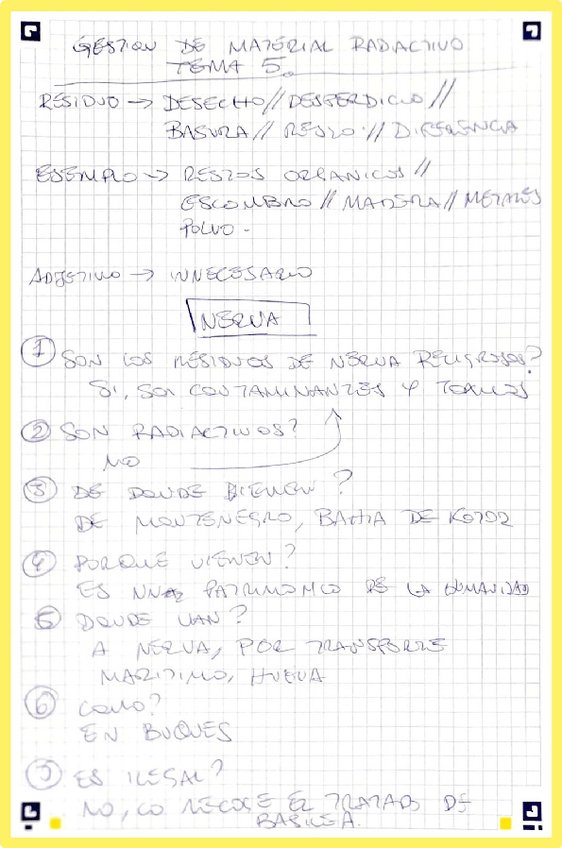 GESTION DE MATERIAL RADIACTIVO
TEMA 5.
RESIDUO → DESECHO // DESPERDICIO //
BASURA // RESTO // DIFERENCIA
EJEMPLO → RESTOS ORGANICOS //
ESCOMBRO // MADERA // METALES
POLVO -
ADJETIVO → INNECESARIO
NERVA
① SON LOS RESIDUOS DE NERVA PELIGROSOS?
SI, SON CONTAMINANTES Y TOXICOS
② SON RADIACTIVOS?
NO
③ DE DONDE BIENEN?
DE MONTENEGRO, BAHIA DE KOTOR
④ PORQUE VIENEN?
ES PATRIMONIO DE LA HUMANIDAD
⑤ DONDE VAN?
A NERVA, POR TRANSPORTE
MARITIMO, HUELVA
⑥ COMO?
EN BUQUES
⑦ ES ILEGAL?
NO, LO RECOGE EL TRATADO DE
BASILEA.